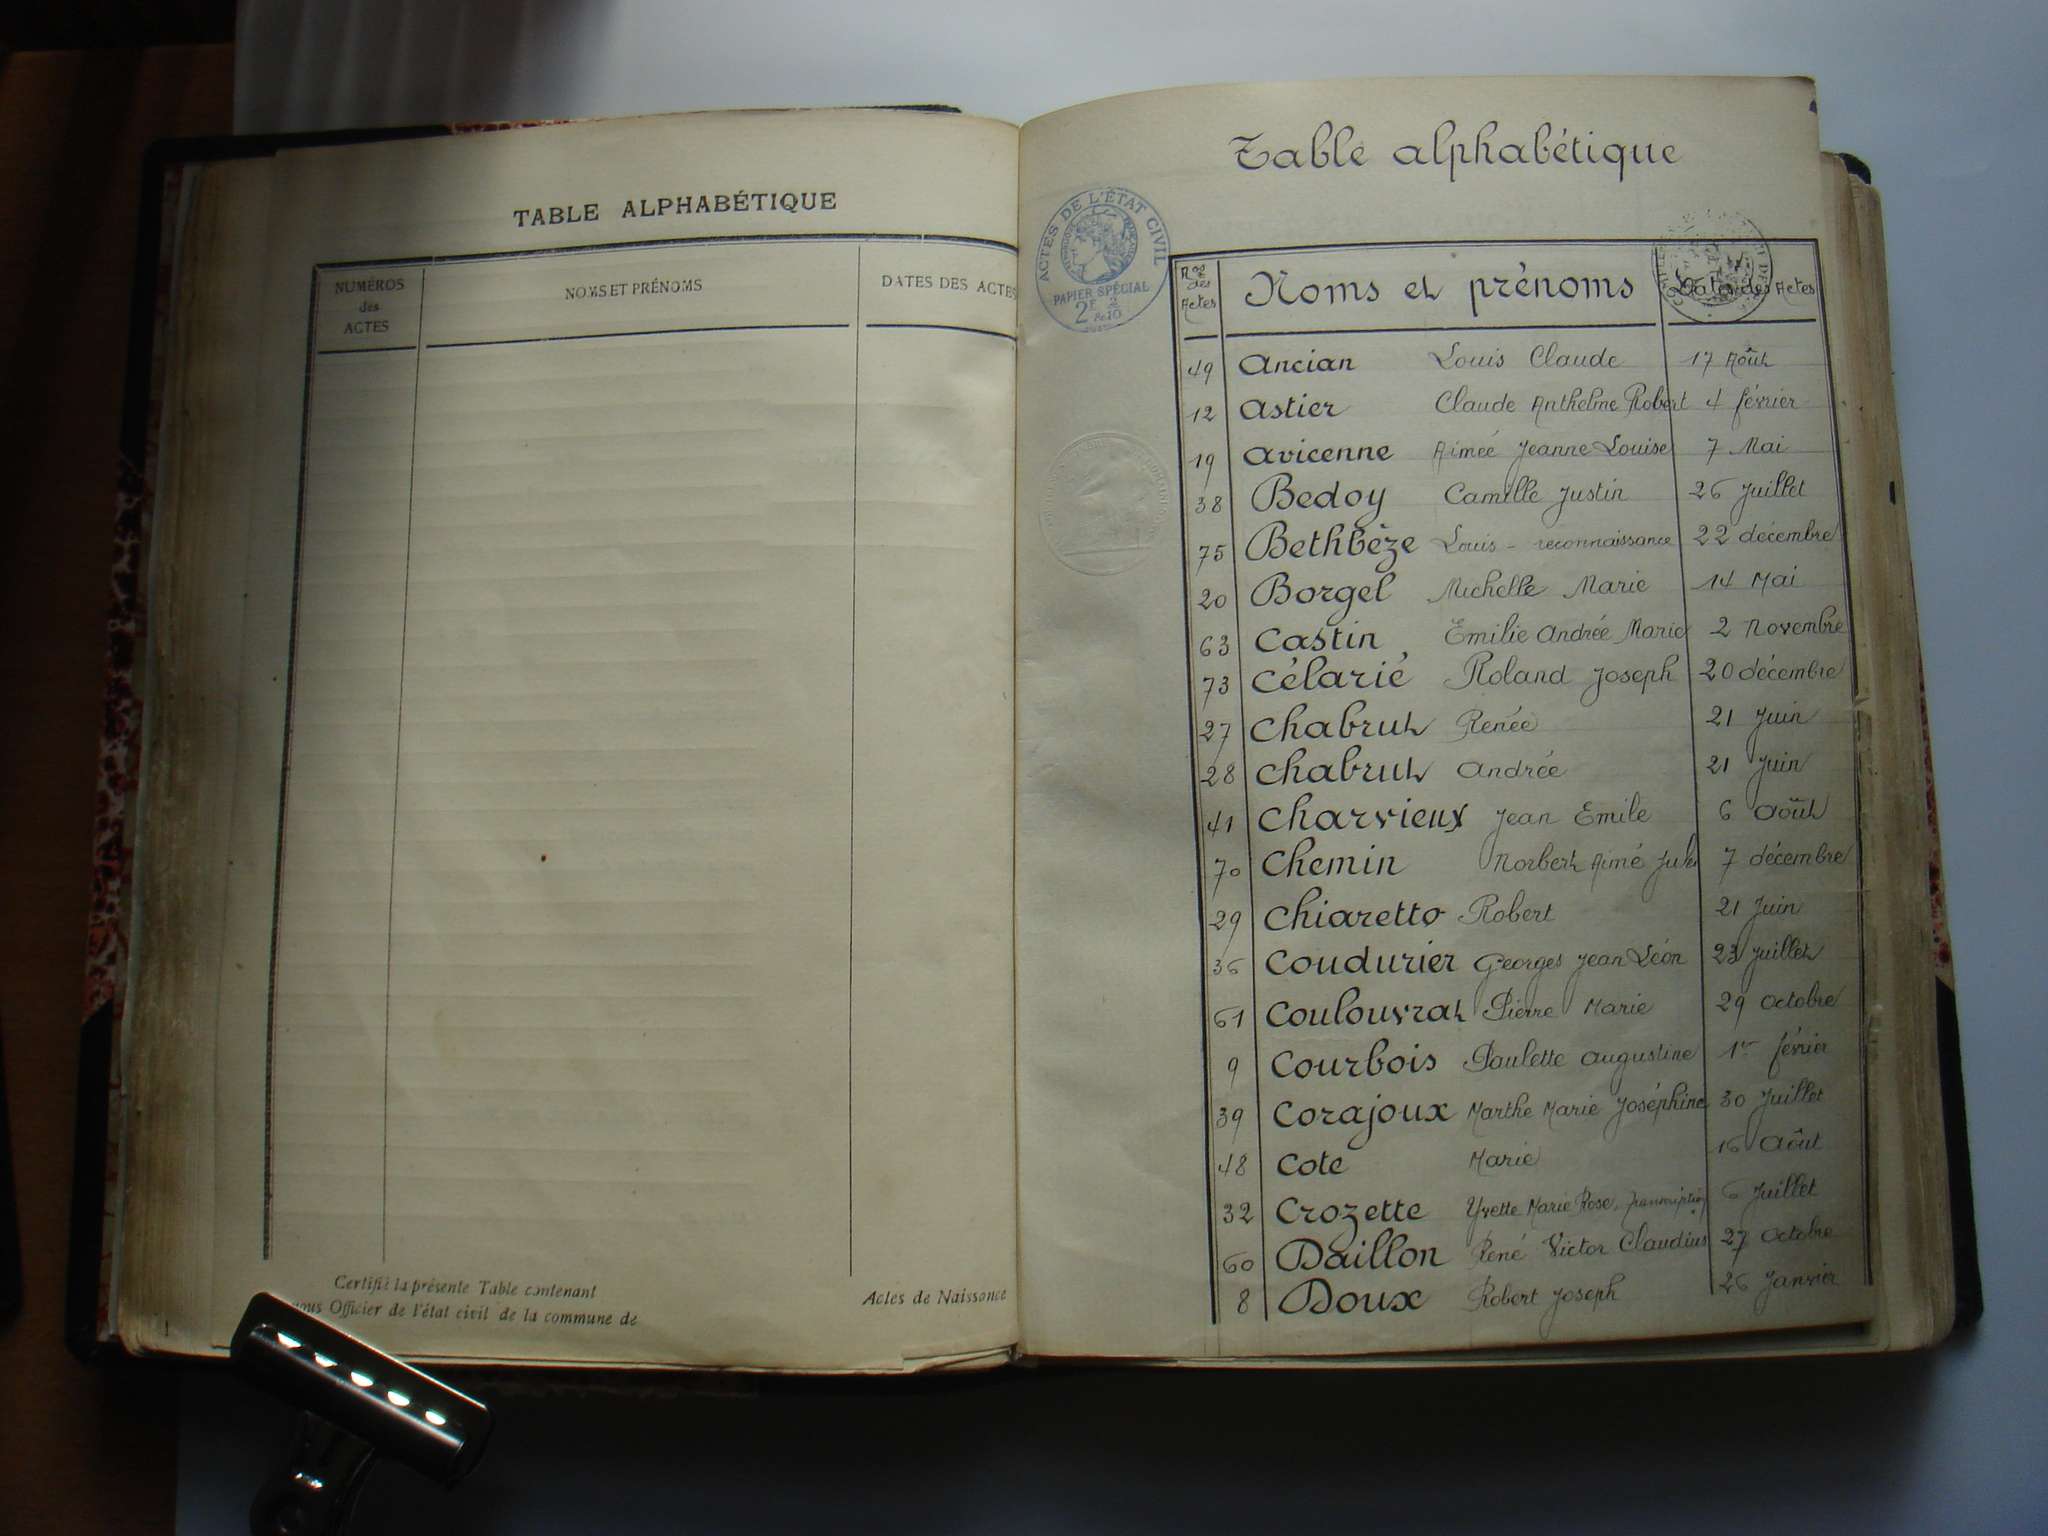 TABLE ALPHABÉTIQUE
NUMÉROS des ACTES NOMS ET PRÉNOMS DATES DES ACTES
Certifié la présente Table contenant Actes de Naissance
nous Officier de l'état civil de la commune de
Table alphabétique
ACTES DE L'ÉTAT CIVIL
PAPIER SPÉCIAL
Nos des Actes Noms et prénoms Dates des Actes
49 Ancian Louis Claude 17 Août
12 Astier Claude Anthelme Robert 4 février
19 Avicenne Aimée Jeanne Louise 7 Mai
38 Bedoy Camille Justin 26 Juillet
75 Bethbèze Louis - reconnaissance 22 décembre
20 Borgel Michelle Marie 14 Mai
63 Castin Emilie Andrée Marie 2 Novembre
73 Célarié Roland Joseph 20 décembre
27 Chabrut Renée 21 Juin
28 Chabrut Andrée 21 Juin
41 Charvieux Jean Emile 6 Août
70 Chemin Norbert Aimé Jules 7 décembre
29 Chiaretto Robert 21 Juin
36 Coudurier Georges Jean Léon 23 Juillet
61 Coulouvrat Pierre Marie 29 Octobre
9 Courbois Paulette Augustine 1er février
39 Corajoux Marthe Marie Joséphine 30 Juillet
48 Cote Marie 16 Août
32 Crozette Yvette Marie Rose, Transcription 6 Juillet
60 Daillon René Victor Claudius 27 Octobre
8 Doux Robert Joseph 26 Janvier